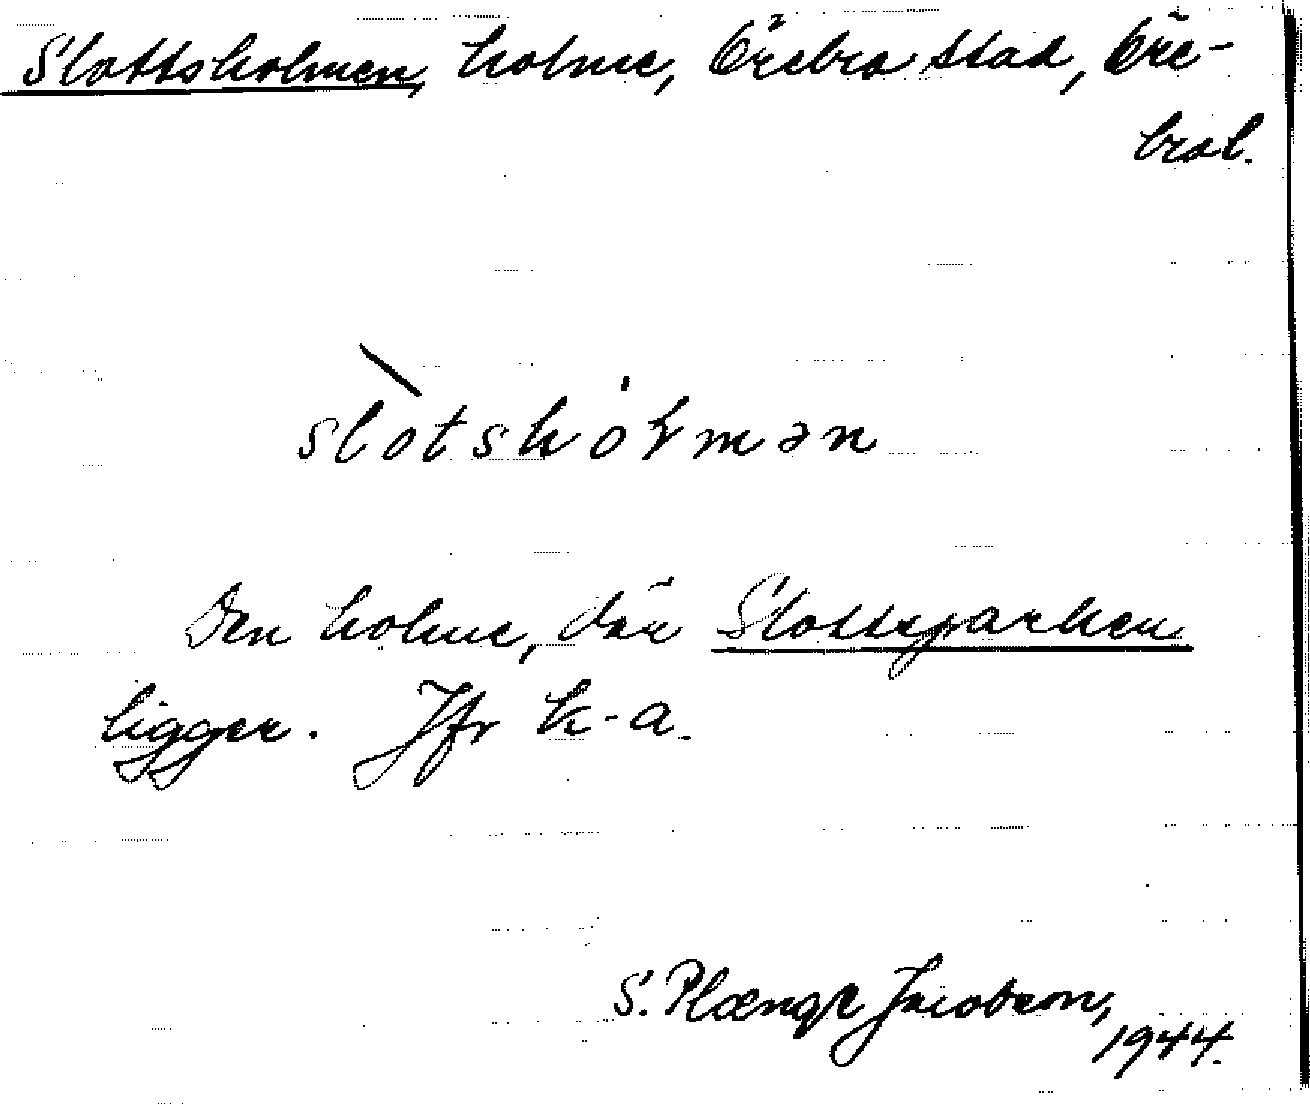 Slottsholmen, holme, Örebro stad, Öre-
brol.
slòtshòlmən
Den holme, där Slottsparken
ligger. Jfr k-a.
S. Plænge Jacobson,
1944.